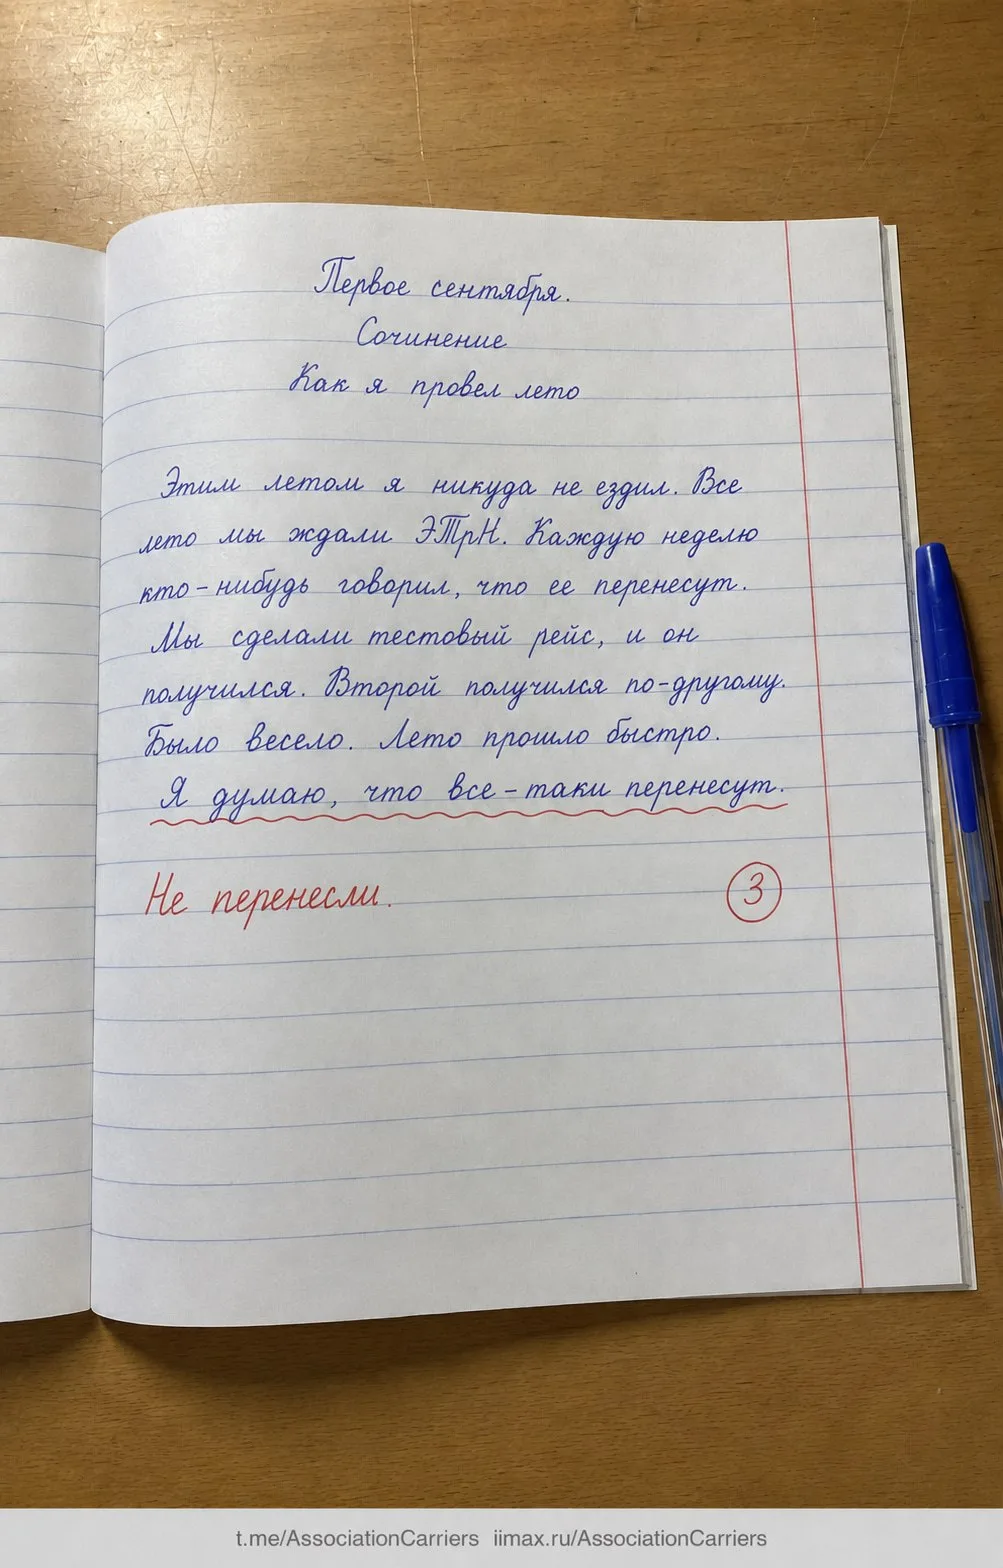 Первое сентября.
Сочинение
Как я провел лето
Этим летом я никуда не ездил. Все
лето мы ждали ЭТрН. Каждую неделю
кто-нибудь говорил, что ее перенесут.
Мы сделали тестовый рейс, и он
получился. Второй получился по-другому.
Было весело. Лето прошло быстро.
Я думаю, что все-таки перенесут.
Не перенесли.
3
t.me/AssociationCarriers iimax.ru/AssociationCarriers